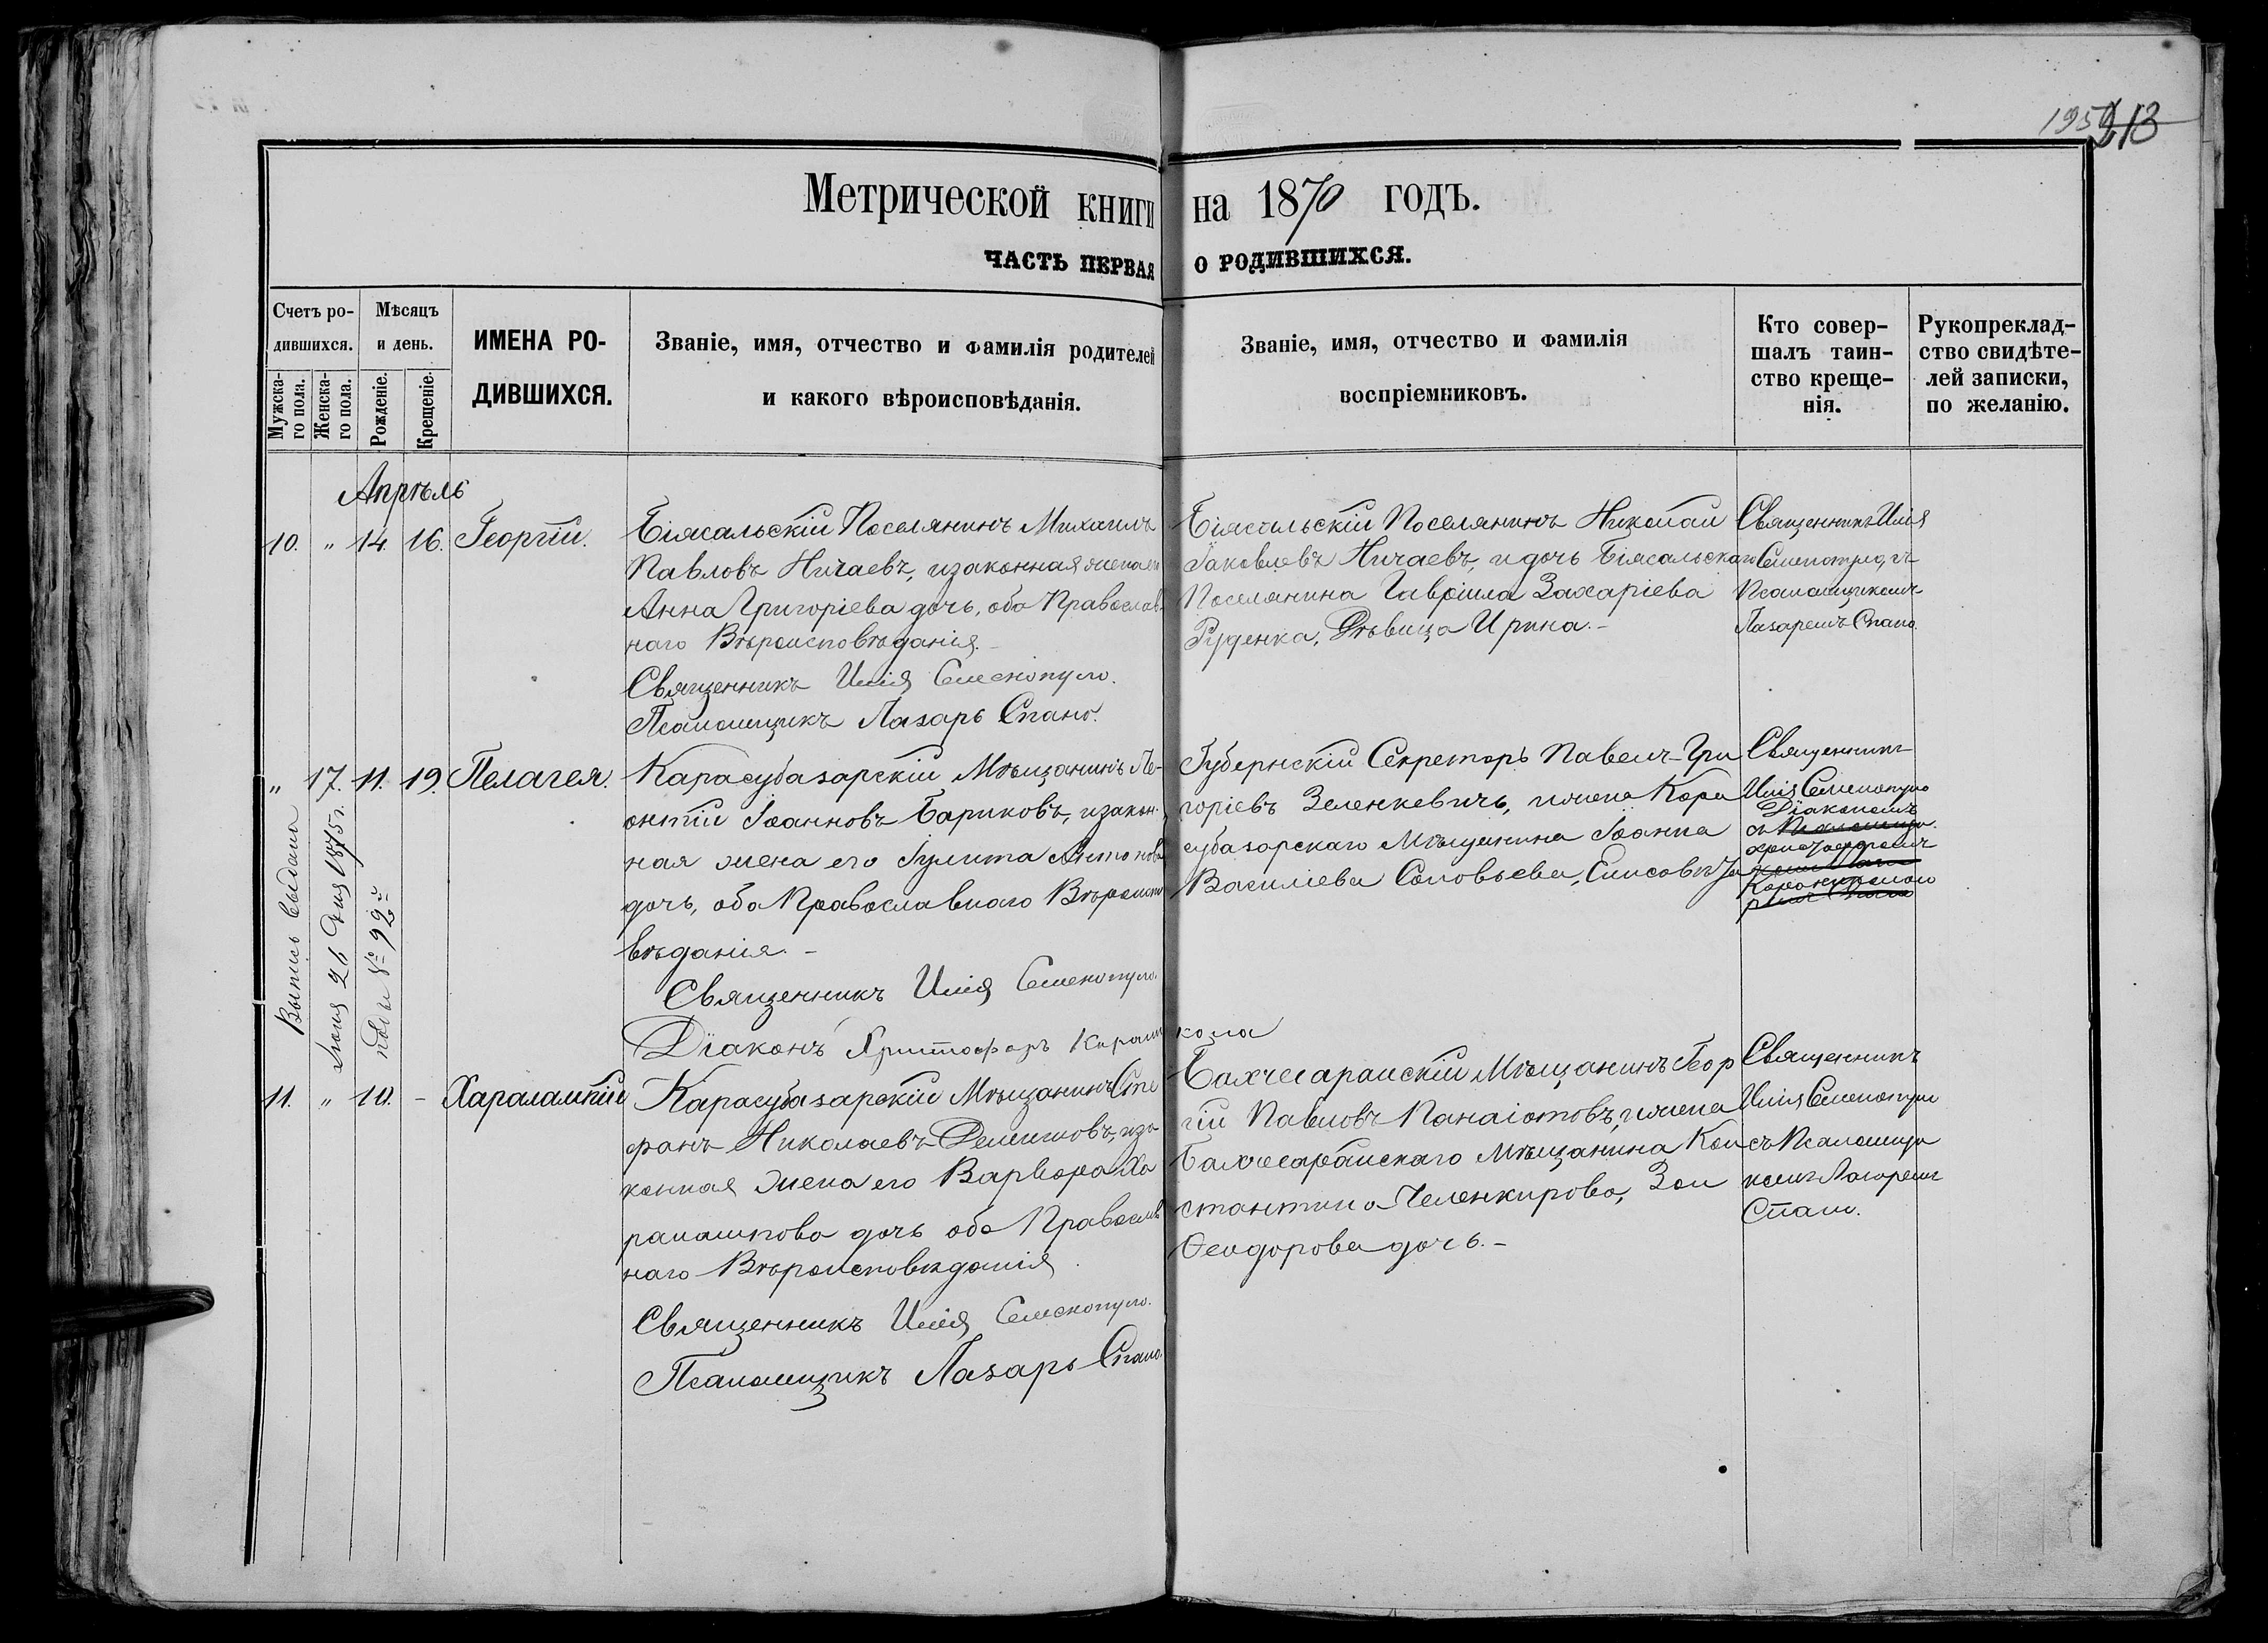 195 213
Метрической книги на 1870 годъ.
ЧАСТЬ ПЕРВАЯ О РОДИВШИХСЯ.
Счетъ ро-
дившихся.
Мужска-
го пола.
Женска-
го пола.
Мѣсяцъ
и день.
Рожденіе.
Крещеніе.
ИМЕНА РО-
ДИВШИХСЯ.
Званіе, имя, отчество и фамилія родителей
и какого вѣроисповѣданія.
Званіе, имя, отчество и фамилія
воспріемниковъ.
Кто совер-
шалъ таин-
ство креще-
нія.
Рукопреклад-
ство свидѣте-
лей записки,
по желанію.
Апрѣль
10. " 14. 16. Георгій.
Біясальскій Поселянинъ Михаилъ
Павловъ Ничаевъ, и законная жена его
Анна Григоріева дочь, оба Православ-
наго Вѣроисповѣданія.
Священникъ Илія Семенопуло.
Псаломщикъ Лазарь Спано.
Біясальскій Поселянинъ Николай
Іаковлевъ Ничаевъ, и дочь Біясальскаго
Поселянина Гавріила Захаріева
Руденка, Дѣвица Ирина.-
Священникъ Илія
Семенопуло, съ
Псаломщикомъ
Лазаремъ Спано.
" 17. 11. 19. Пелагея.
Карасубазарскій Мѣщанинъ Ле-
онтій Іоанновъ Бариковъ, и закон-
ная жена его Іулита Антонова
дочь, оба Православнаго Вѣроиспо
вѣданія.-
Священникъ Илія Семенопуло.
Діаконъ Христофоръ Карам
козла
Губернскій Секретарь Павелъ Гри
горіевъ Зеленкевичъ, и жена Кара
субазарскаго Мѣщанина Іоанна
Василіева Соловьева, Елисавета
Священникъ
Илія Семенопуло
Діакономъ
съ Псаломщи
Христофоромъ
Выпись выдана
Іюня 26 дня 1875 г.
подъ № 92й
11. " 10. - Харалампій
Карасубазарскій Мѣщанинъ Сте
фанъ Николаевъ Делиховъ, и за
конная жена его Варвара Ха
ралампова дочь оба Православ
наго Вѣроисповѣданія.
Священникъ Илія Семенопуло.
Псаломщикъ Лазарь Спано.
Бахчесарайскій Мѣщанинъ Геор
гій Павловъ Панаіотовъ, и жена
Бахчесарайскаго Мѣщанина Кон
стантина Челенкирова, Зои
Ѳеодорова дочь.-
Священникъ
Илія Семенопуло
съ Псаломщи
комъ Лазаремъ
Спано.